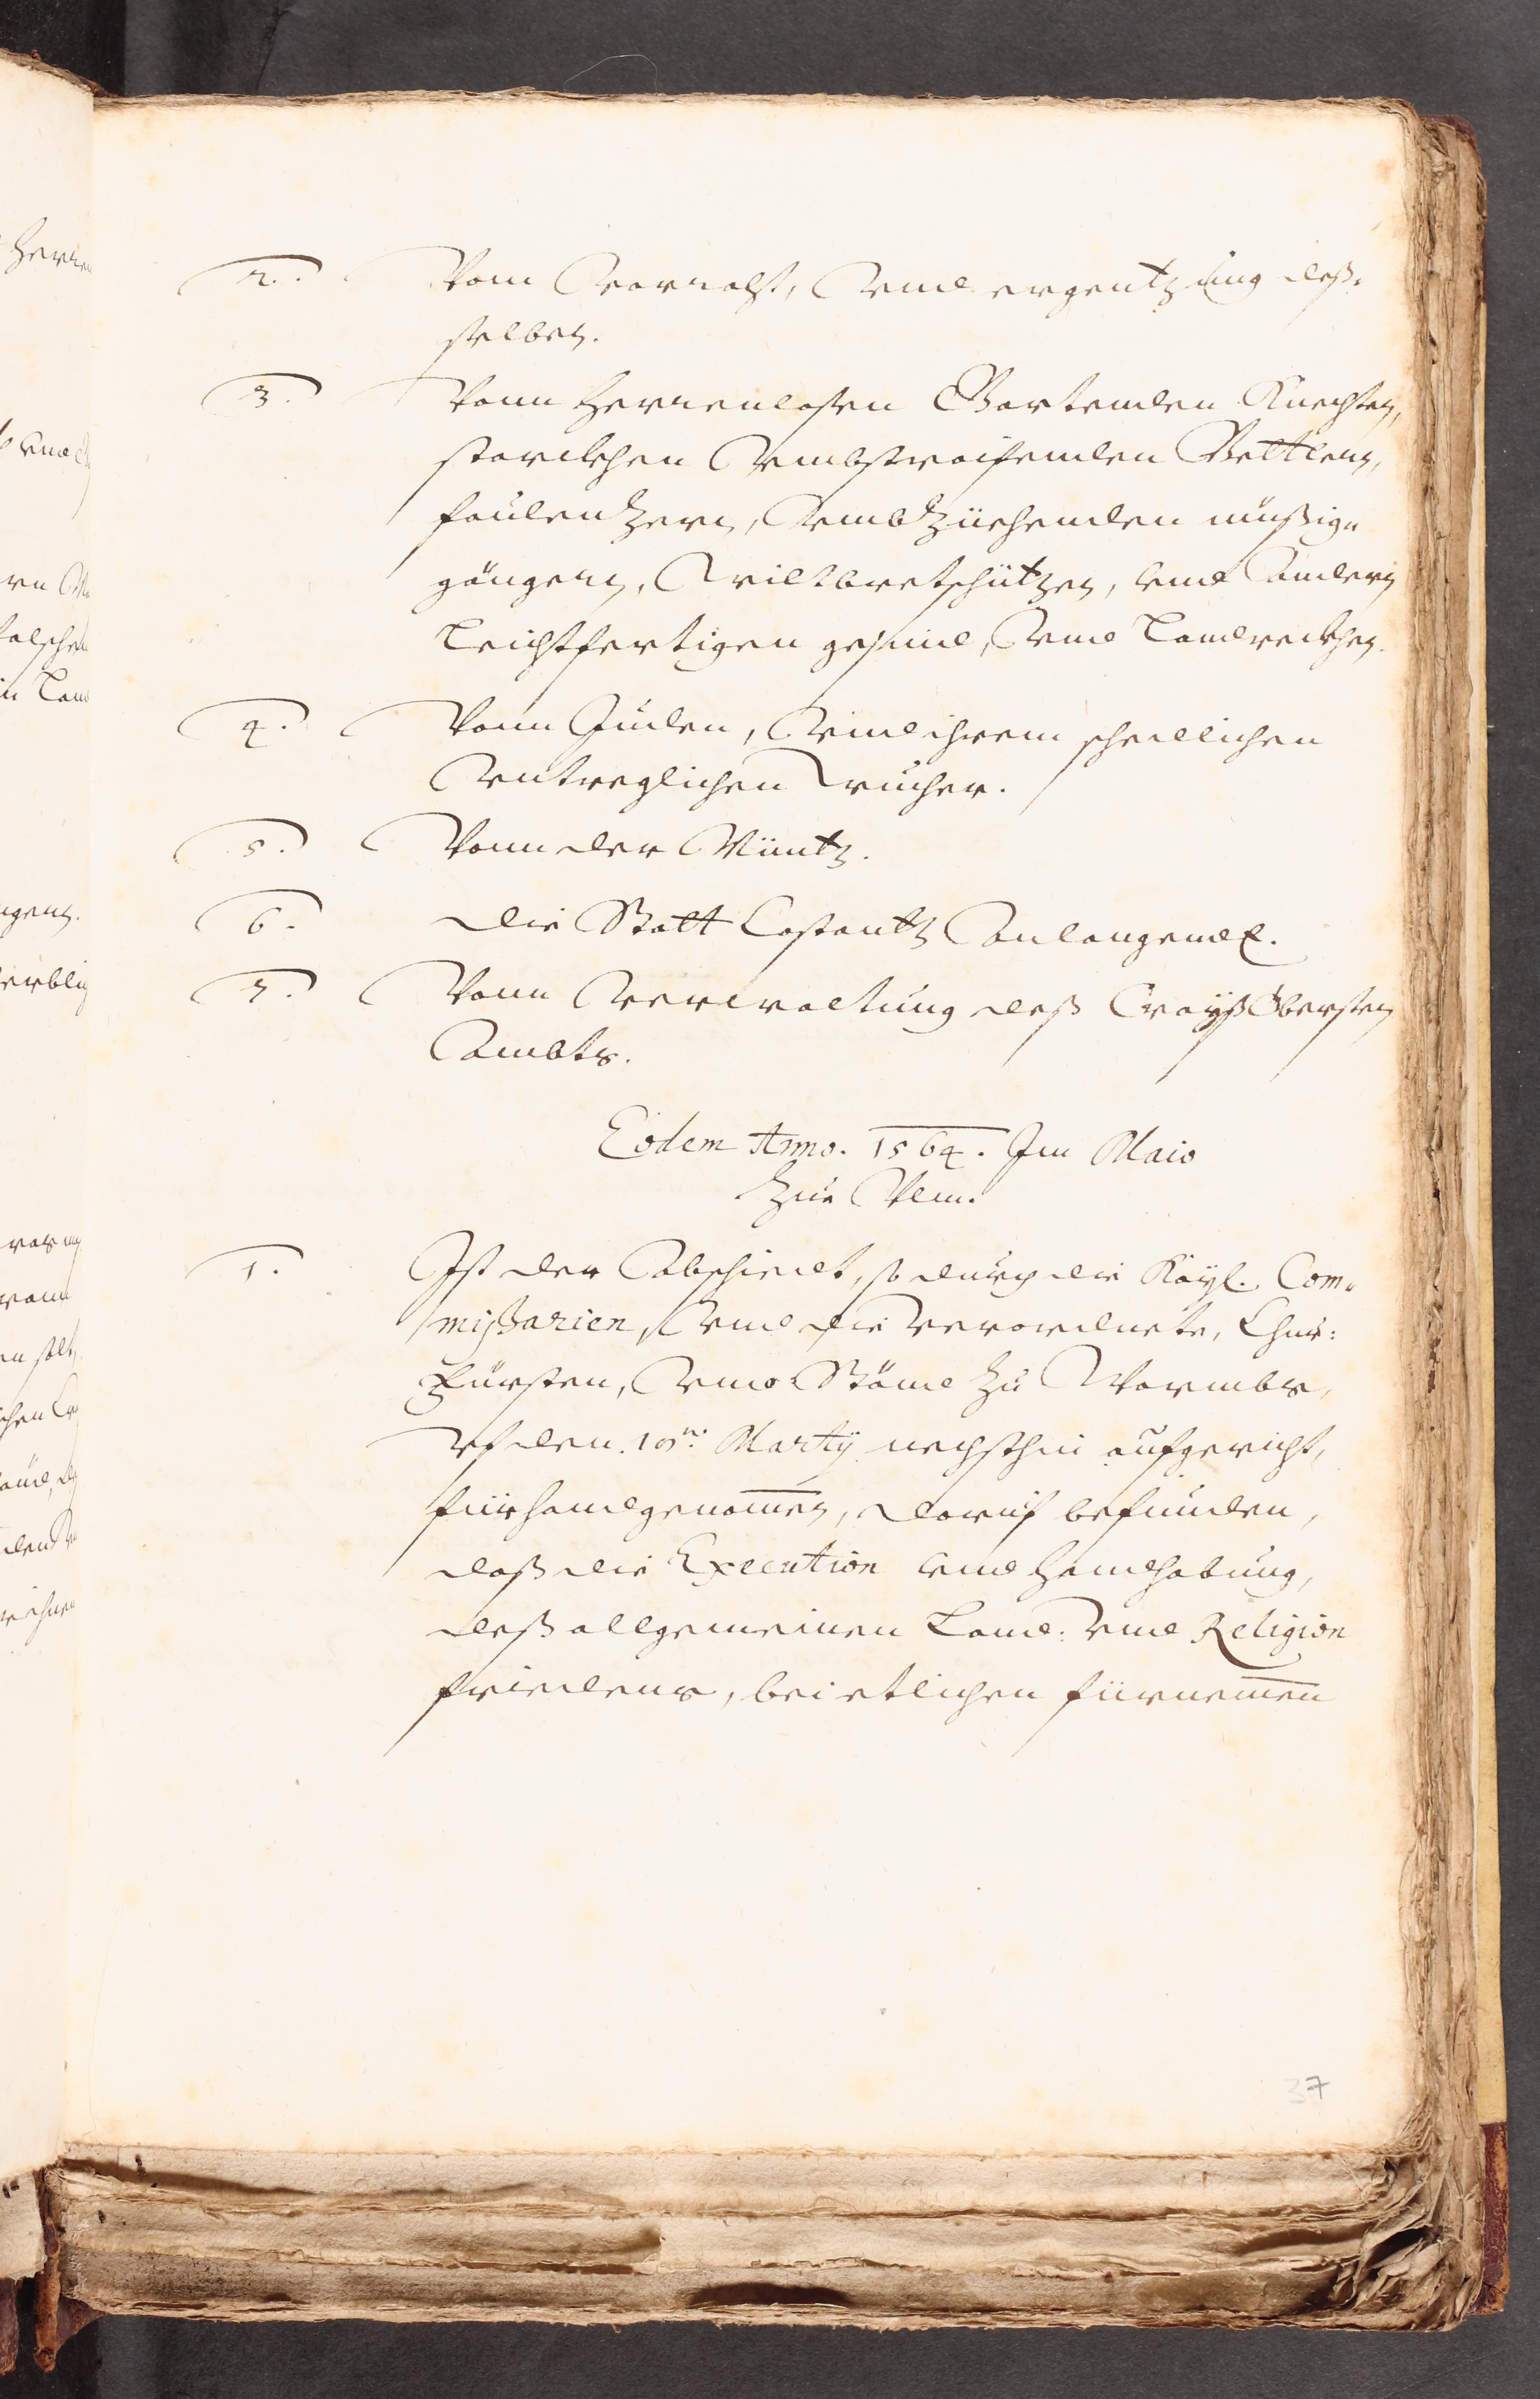 2. Vom Vorraht, Vnnd ergentzung deß-
selben.
3. Vonn Herrenlosen Gartenden Knechten,
starckhen Vmbstraifenden Bettlern,
faulentzern, Vmbzüehenden müßig-
gängern, Wiltbretschützen, vnnd Andern
Leichtfertigen gesind, Vnnd Landreckhen.
4. Vonn Juden, Vnnd ihrem schedlichen
Vntreglichen Wucher.
5. Vonn der Müntz.
6. die Statt Costantz Anlangendt.
7. Vonn Verwaltung deß Crayß Obersten
Ambts.
Eodem Anno. 1564. Im Maio
Zue Vlm.
1. Ist der Abschiedt, so durch die Kayl. Com-
mißarien, Vnnd die Verordnete, Chur:
Fürsten, Vnnd Stännd zu Wormbs,
vf den 10n: Martÿ nechsthin aufgericht,
fürhandgenom̄en, daruf befunden,
daß die Execution vnnd Handhabung,
deß allgemeinen Lannd: vnnd Religion
friedens, bei etlichen fürnem̄en
37
Herren